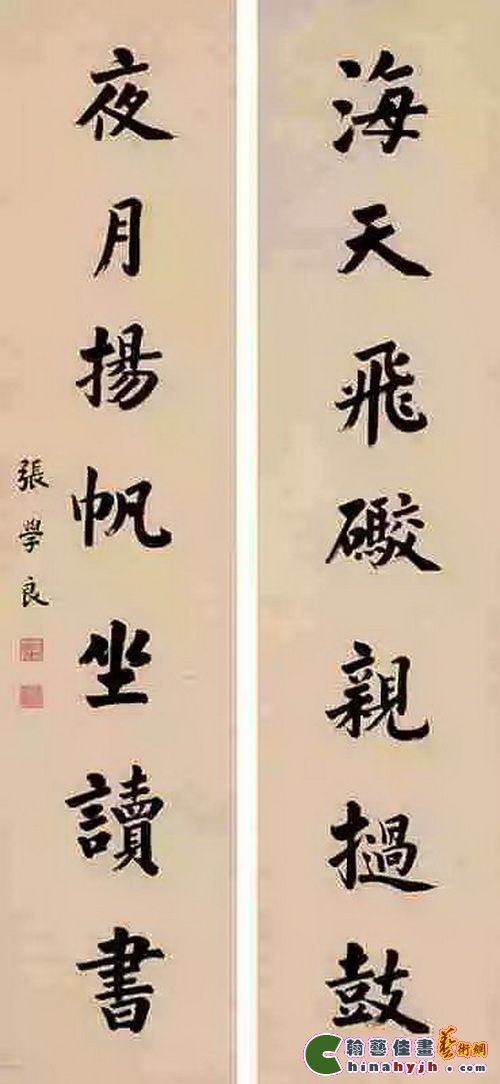 海天飛礮親撾鼓
夜月揚帆坐讀書
張學良
翰藝佳畫藝術網
Chinahyjh.com